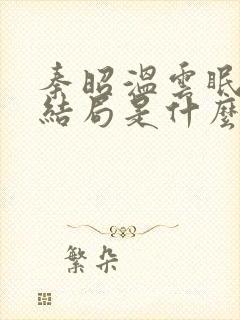 秦昭溫雲眠
結局是什麼
繁朵